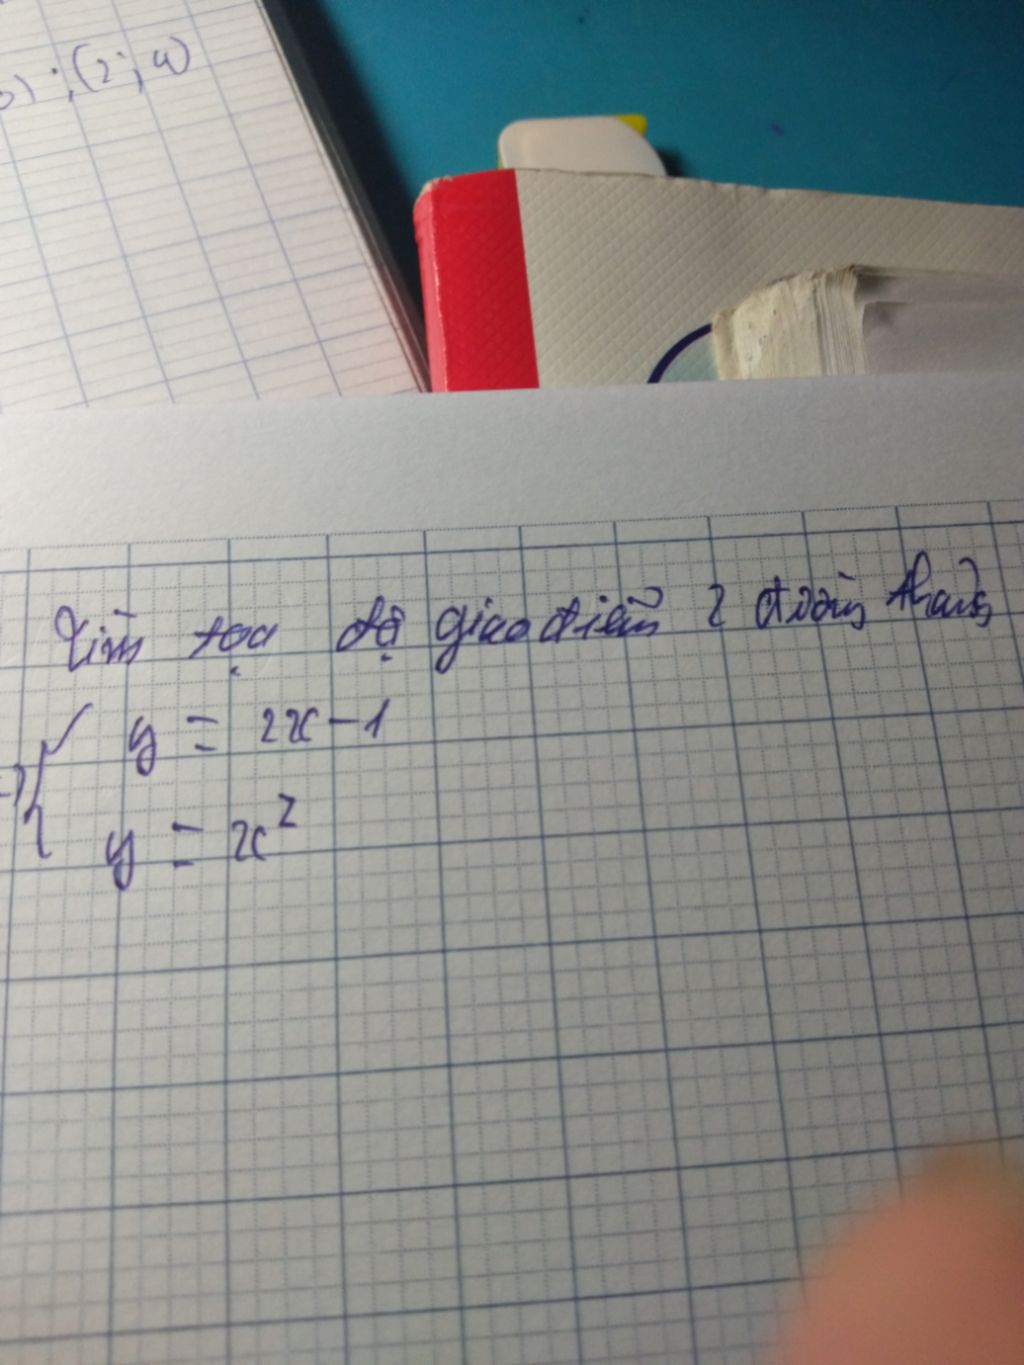 ; (2; 4)
Tìm tọa độ giao điểm 2 đường thẳng
y = 2x - 1
y = x²